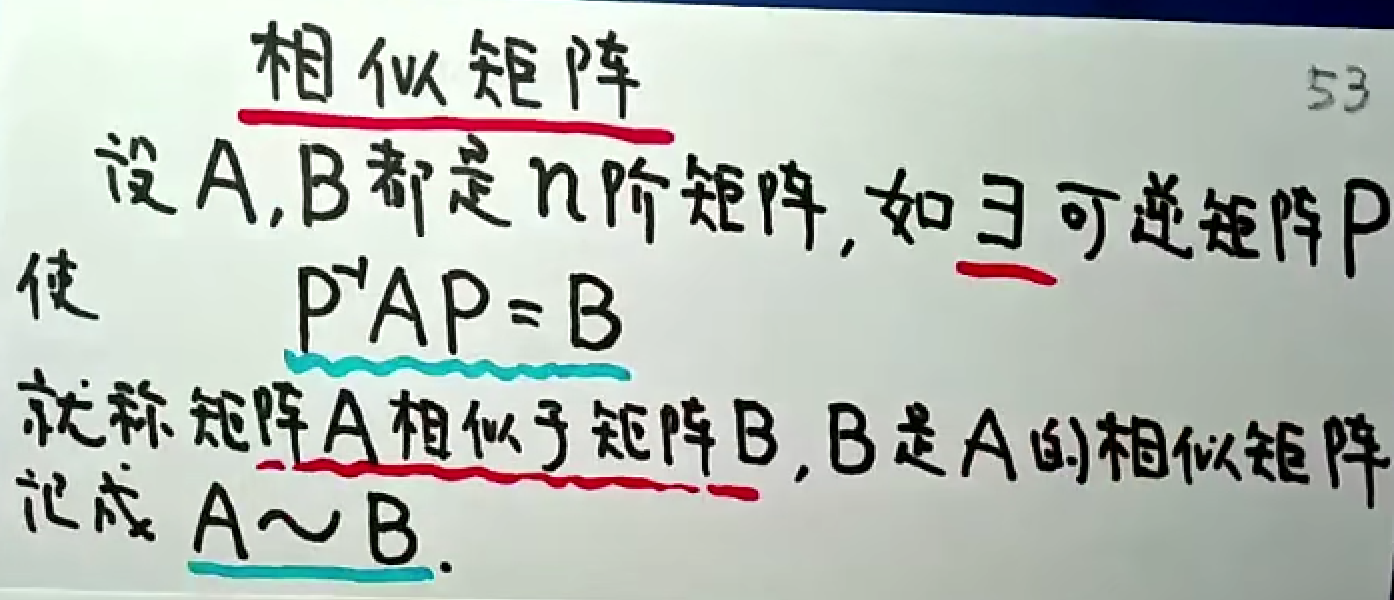 相似矩阵
53
设A,B都是n阶矩阵,如∃可逆矩阵P
使 P⁻¹AP=B
就称矩阵A相似于矩阵B,B是A的相似矩阵
记成 A~B.